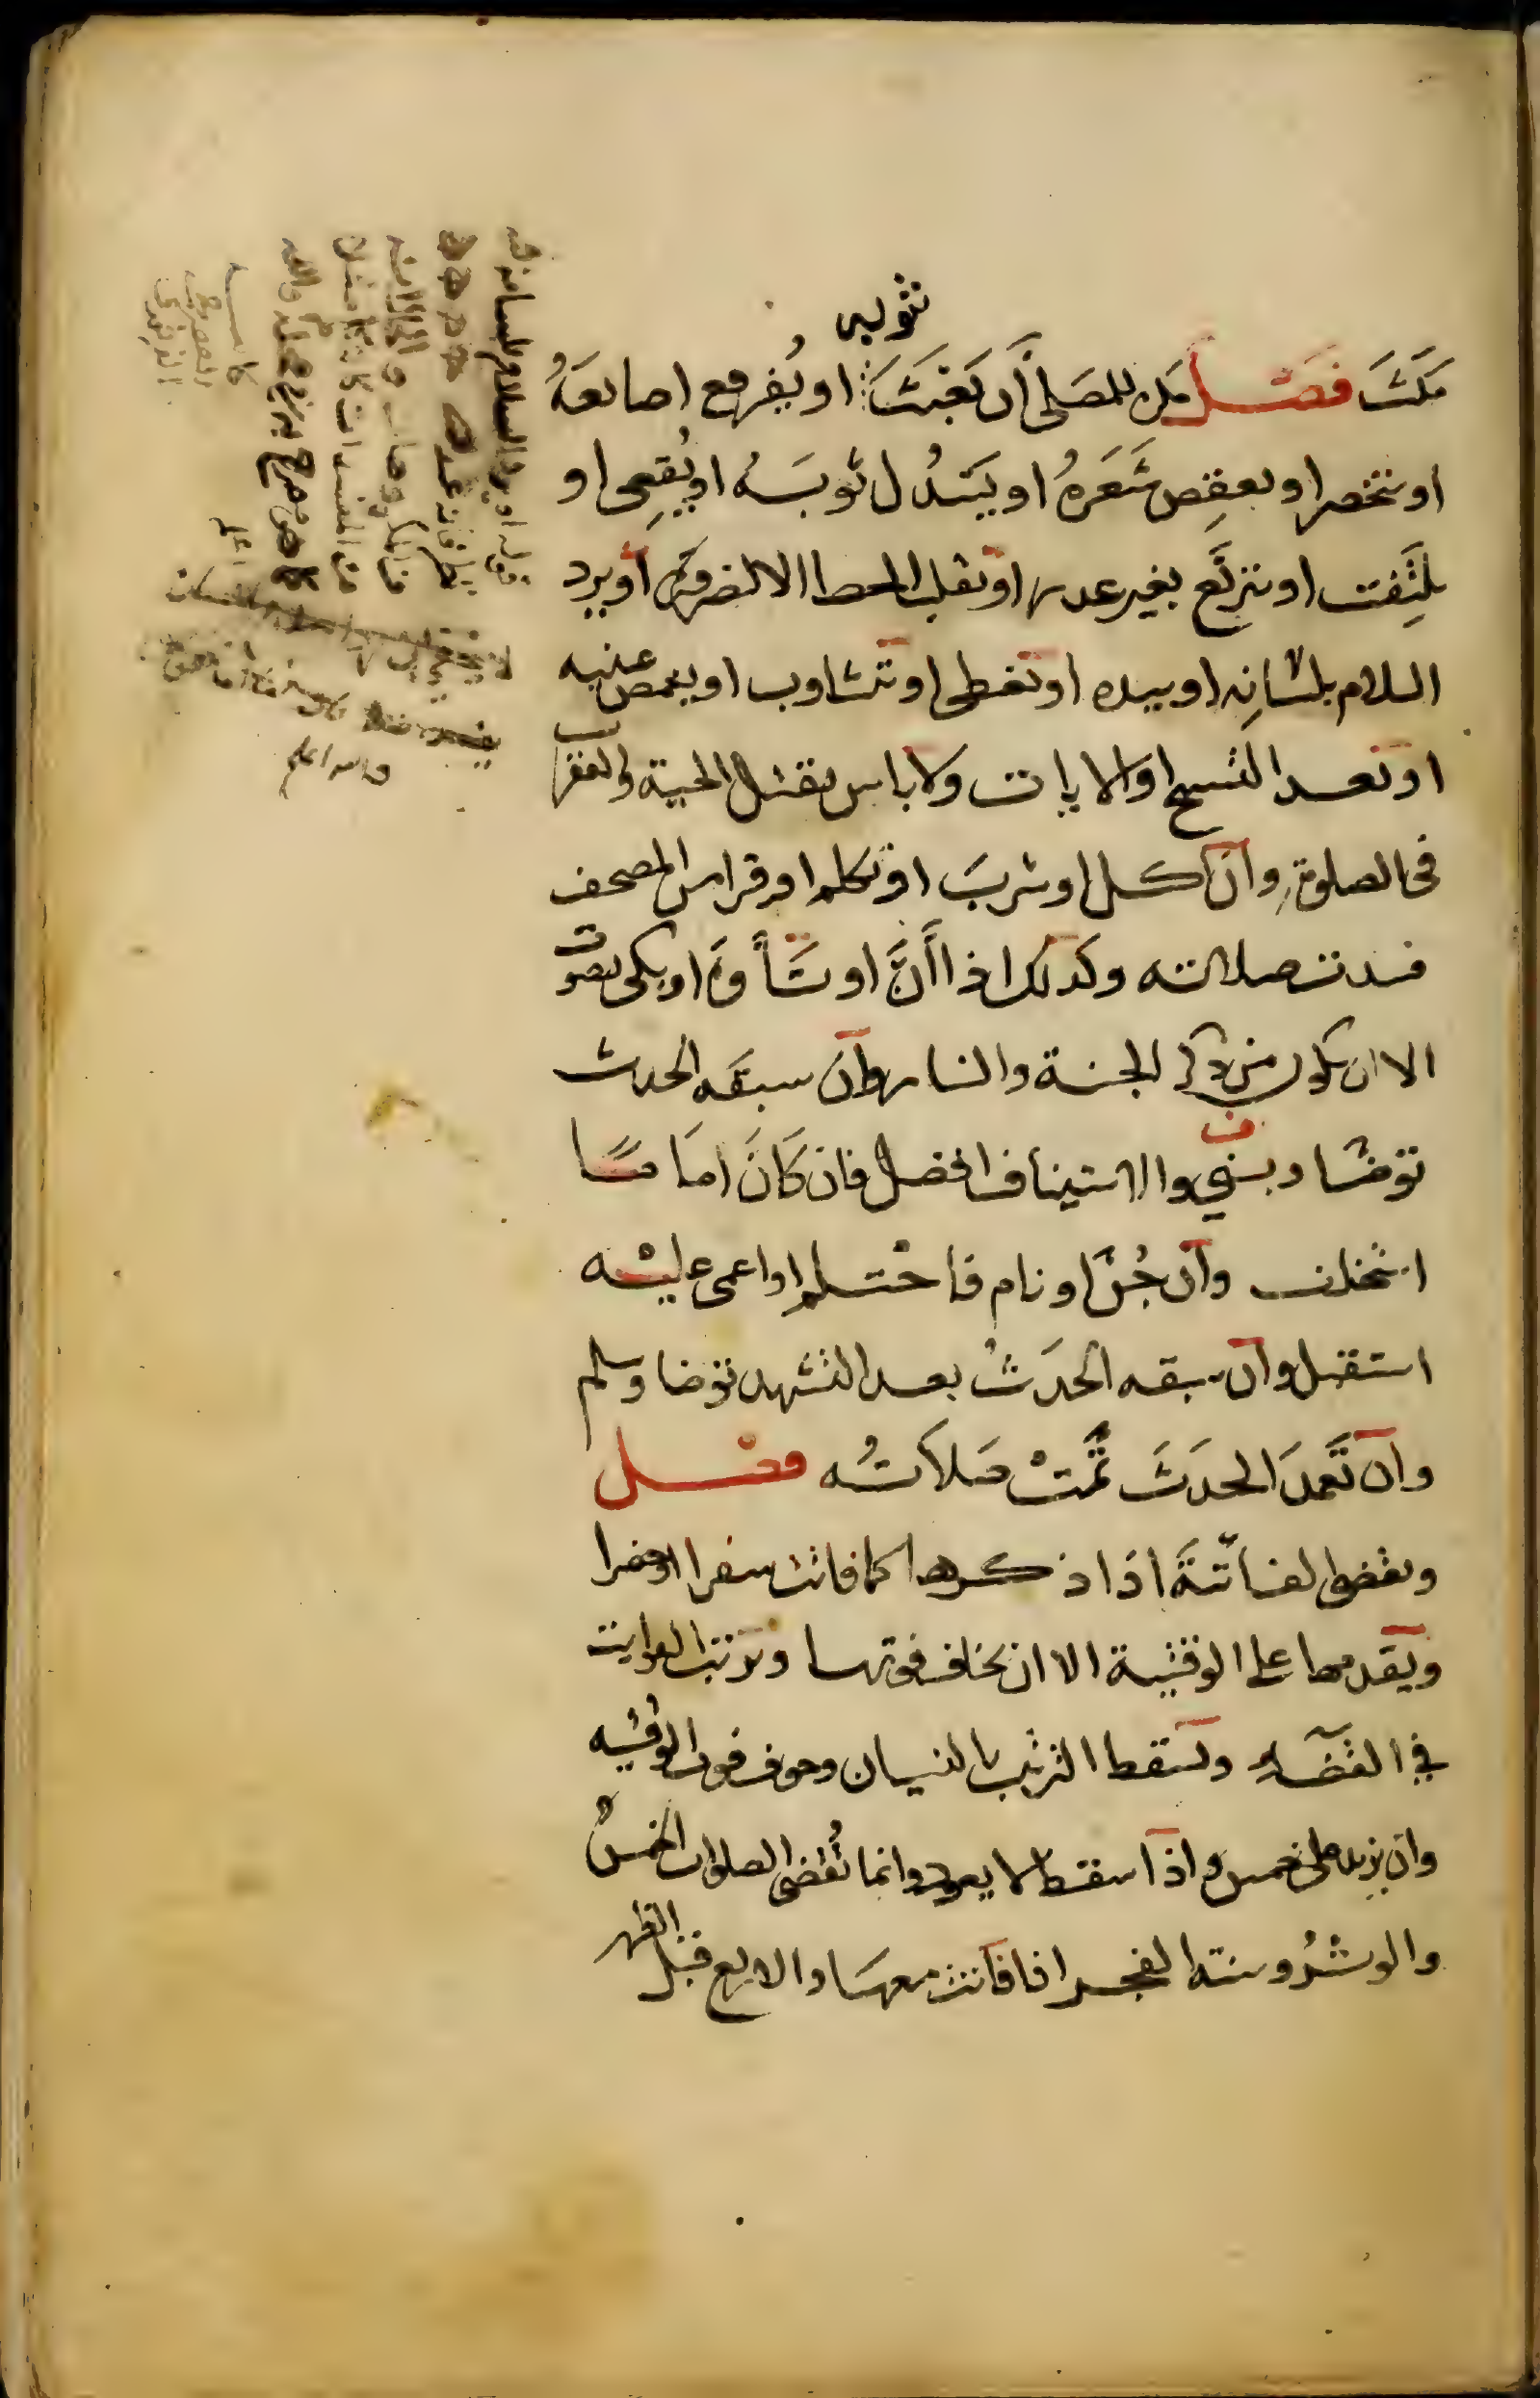 بثوبه
مكث فَصْل يكره للمصلي أن يَعْبَثَ او يُفرقع اصابعَهُ
او يتخصر او يعقِص شَعَرهُ او يَسْدُل ثوبَهُ او يُقعِى او
يلتَفت او يتربَّع بغير عدر او يقلب الحصا الا لضرورة أو يرد
السلام بلسَانِه او بيده او يتمطى او يتثاوب او يغمص عينيه
او يعد التسبيح او الايات ولا باس بقتل الحية والعقرب
فى الصلوةِ وان اكل او شربَ او تكلم او قرا من المصحف
فسدت صلاته وكدلك اذا أنَّ او تَأَوَّه او بكى بصوت
الا ان يكون من ذكر الجنة والنار وان سبقه الحدث
توضا وبنى والاستيناف افضل فان كَانَ امامًا
استخلف وان جُنّ او نام فاحْتلم او اغمى عليْه
استقبل وان سبقه الحدَثُ بعد التشهد توضا وسلم
وان تعَمدَ الحدَثَ تمَّتْ صَلاَتُه فصْل
ويقضى الفائتَةَ اذا ذكرها كما فاتت سفرا او حضرا
ويقدمها على الوقتية الا ان يخاف فوتها ويرتب الفوايت
في القضَاءِ ويسقط الترتيب بالنسيان وخوف فوت الوقتيه
وان يزيد على خمس واذا سقط لا يعود وانما تُقضى الصلوات الخمسُ
والوترُ وسنة الفجر اذا فاتت معهَا والاربع قبل الظهر
والله اعلم